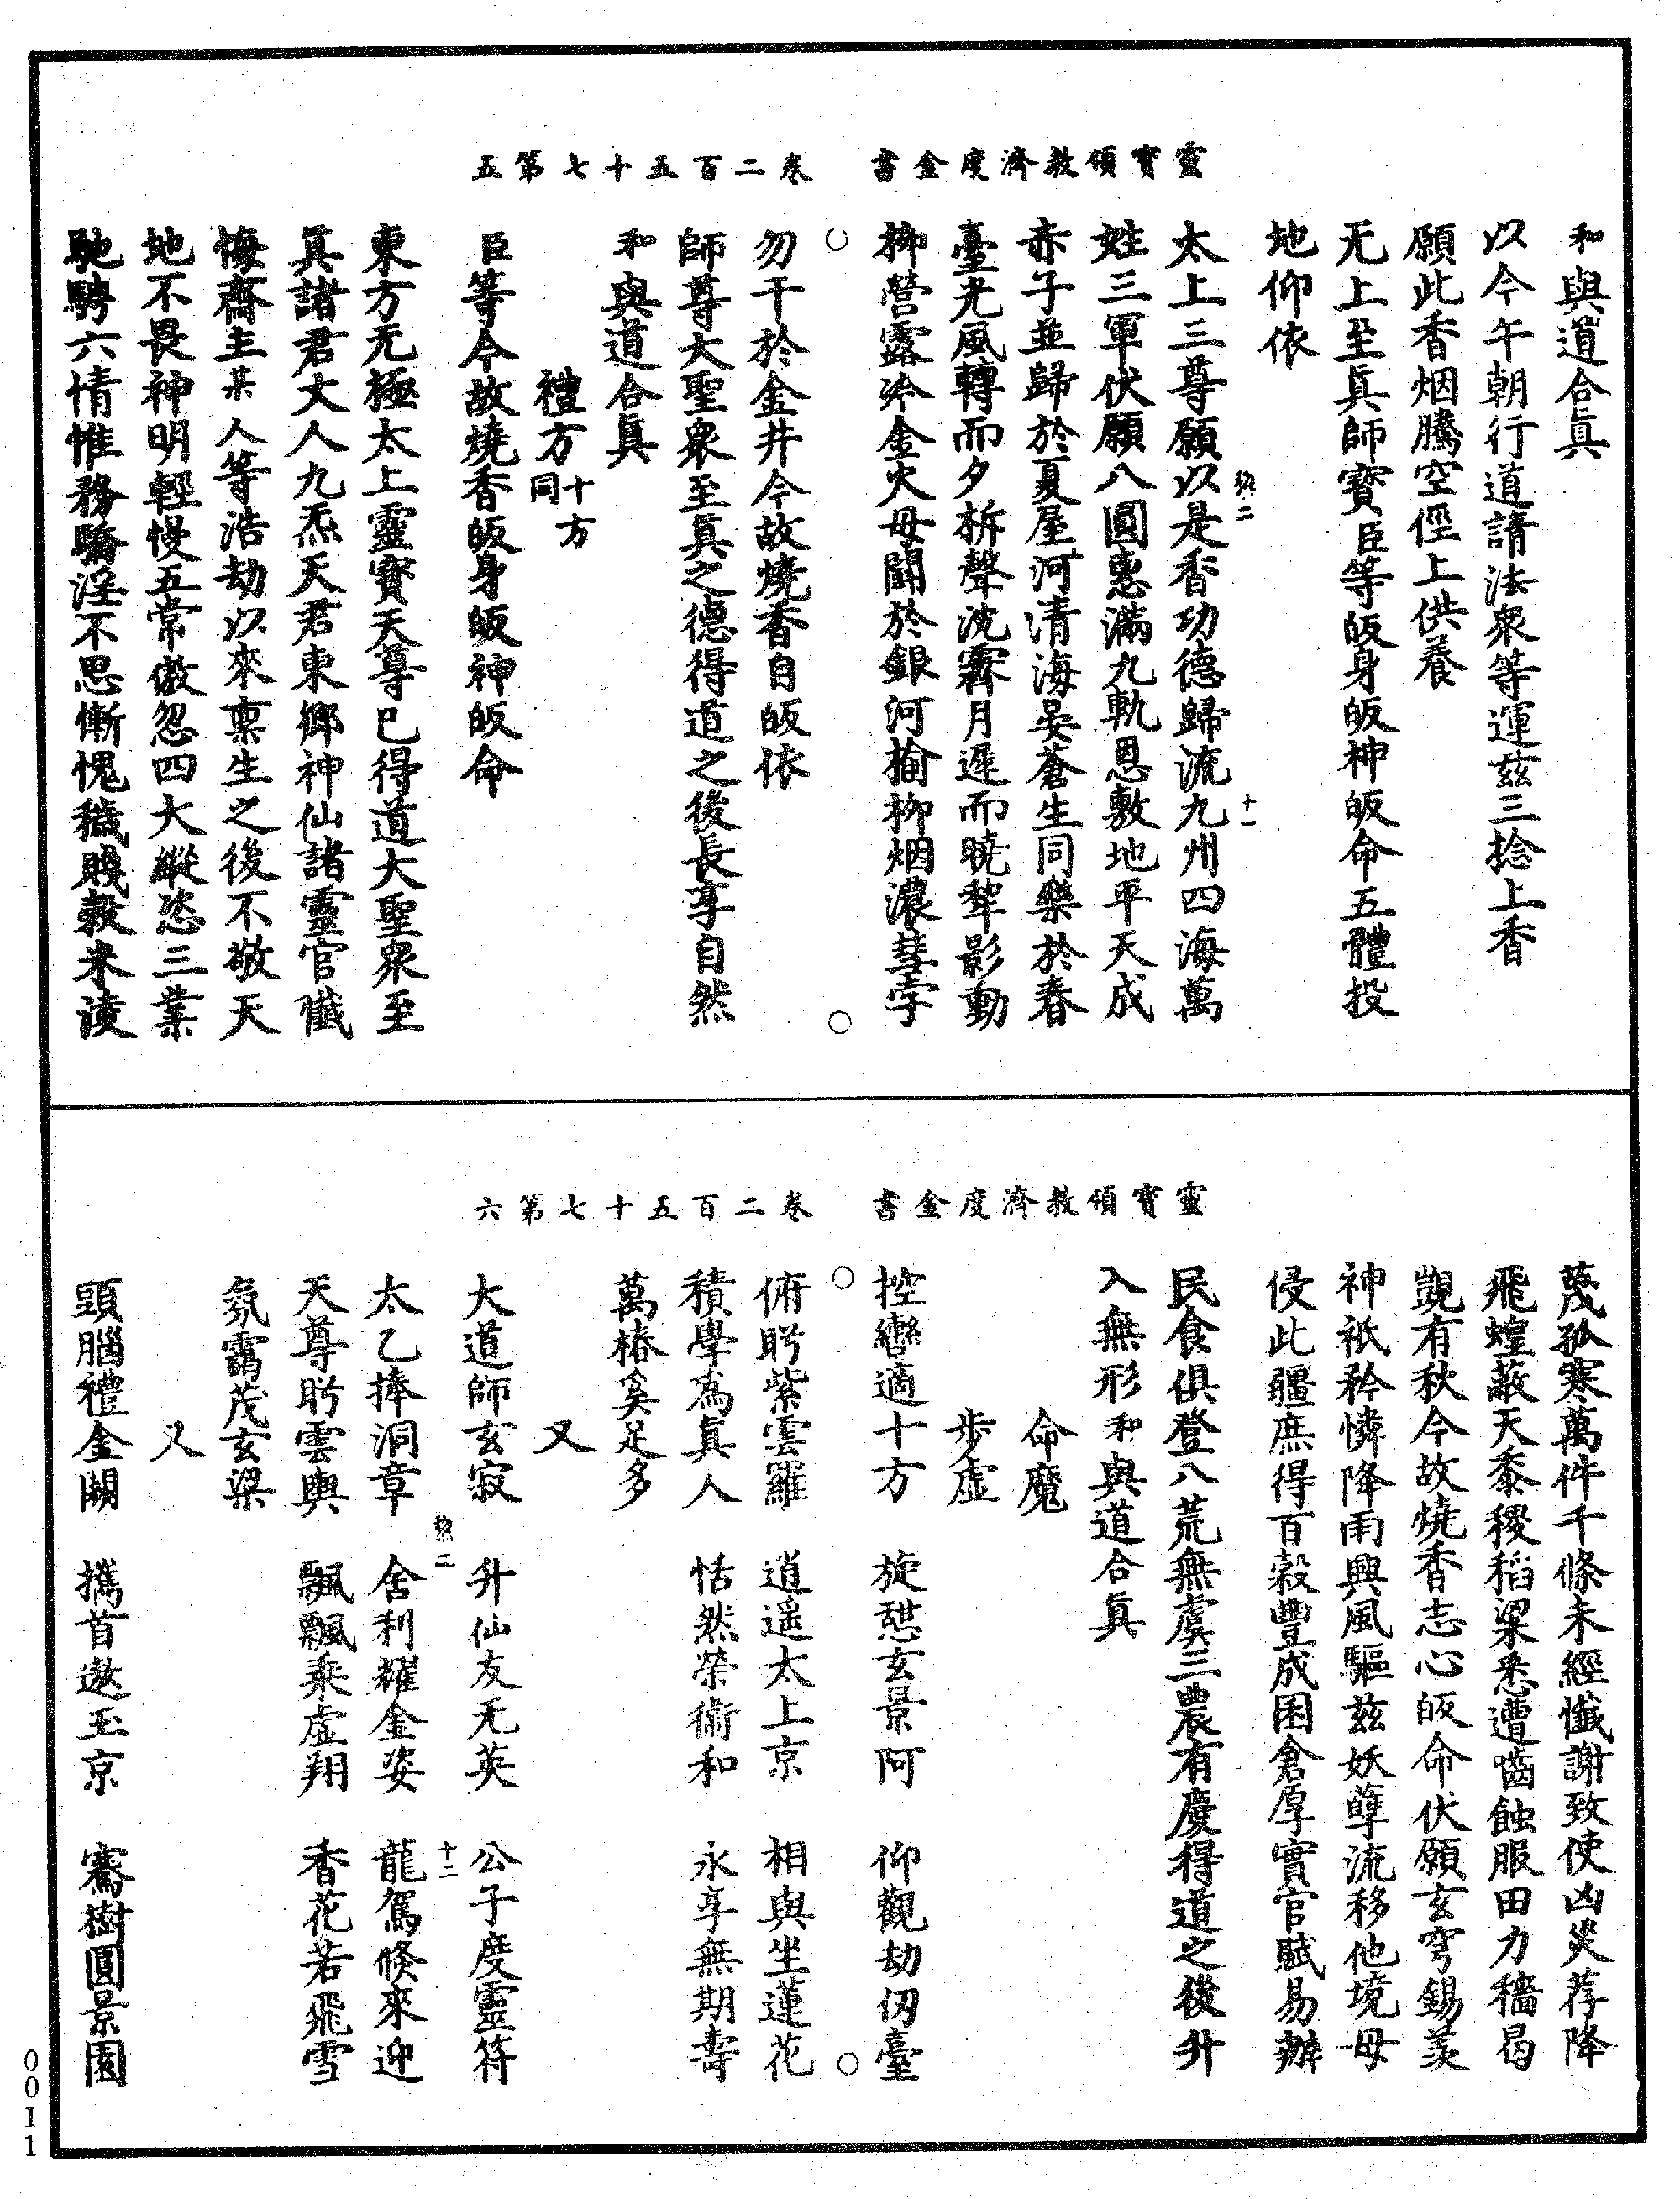 靈寶領教濟度金書　卷二百五十七第五
和與道合眞
以今午朝行道請法衆等運兹三捻上香
願此香烟騰空徑上供養
无上至眞師寶臣等皈身皈神皈命五體投
地仰依
太上三尊願以是香功德歸流九州四海萬
姓三軍伏願八圓惠滿九軌恩敷地平天成
赤子並歸於夏屋河清海晏蒼生同樂於春
臺光風轉而夕柝聲沈霽月遲而曉犂影動
柳營露冷金火毋鬪於銀河榆柳烟濃彗孛
勿干於金井今故燒香自皈依
師尊大聖衆至眞之德得道之後長享自然
和與道合眞
禮方十方同
臣等今故燒香皈身皈神皈命
東方无極太上靈寶天尊已得道大聖衆至
眞諸君丈人九炁天君東鄉神仙諸靈官懺
悔齋主某人等浩劫以來稟生之後不敬天
地不畏神明輕慢五常傲忽四大縱恣三業
馳騁六情惟務驕淫不思慚愧穢賤穀米淩
靈寶領教濟度金書　卷二百五十七第六
蔑孤寒萬件千條未經懺謝致使凶災荐降
飛蝗蔽天黍稷稻粱悉遭嚙蝕服田力穡曷
覬有秋今故燒香志心皈命伏願玄穹錫羨
神祇矜憐降雨興風驅兹妖孽流移他境毋
侵此疆庶得百穀豐成囷倉厚實官賦易辦
民食俱登八荒無虞三農有慶得道之後升
入無形和與道合眞
命魔
步虛
控轡適十方　旋憇玄景阿　仰觀劫仞臺
俯眄紫雲羅　逍遥太上京　相與坐蓮花
積學爲眞人　恬然榮衛和　永享無期壽
萬椿奚足多
又
大道師玄寂　升仙友无英　公子度靈符
太乙捧洞章　舍利耀金姿　龍駕倏來迎
天尊眄雲輿　飄飄乘虛翔　香花若飛雪
氛靄茂玄梁
又
頭腦禮金闕　攜首遨玉京　騫樹圓景園
0011